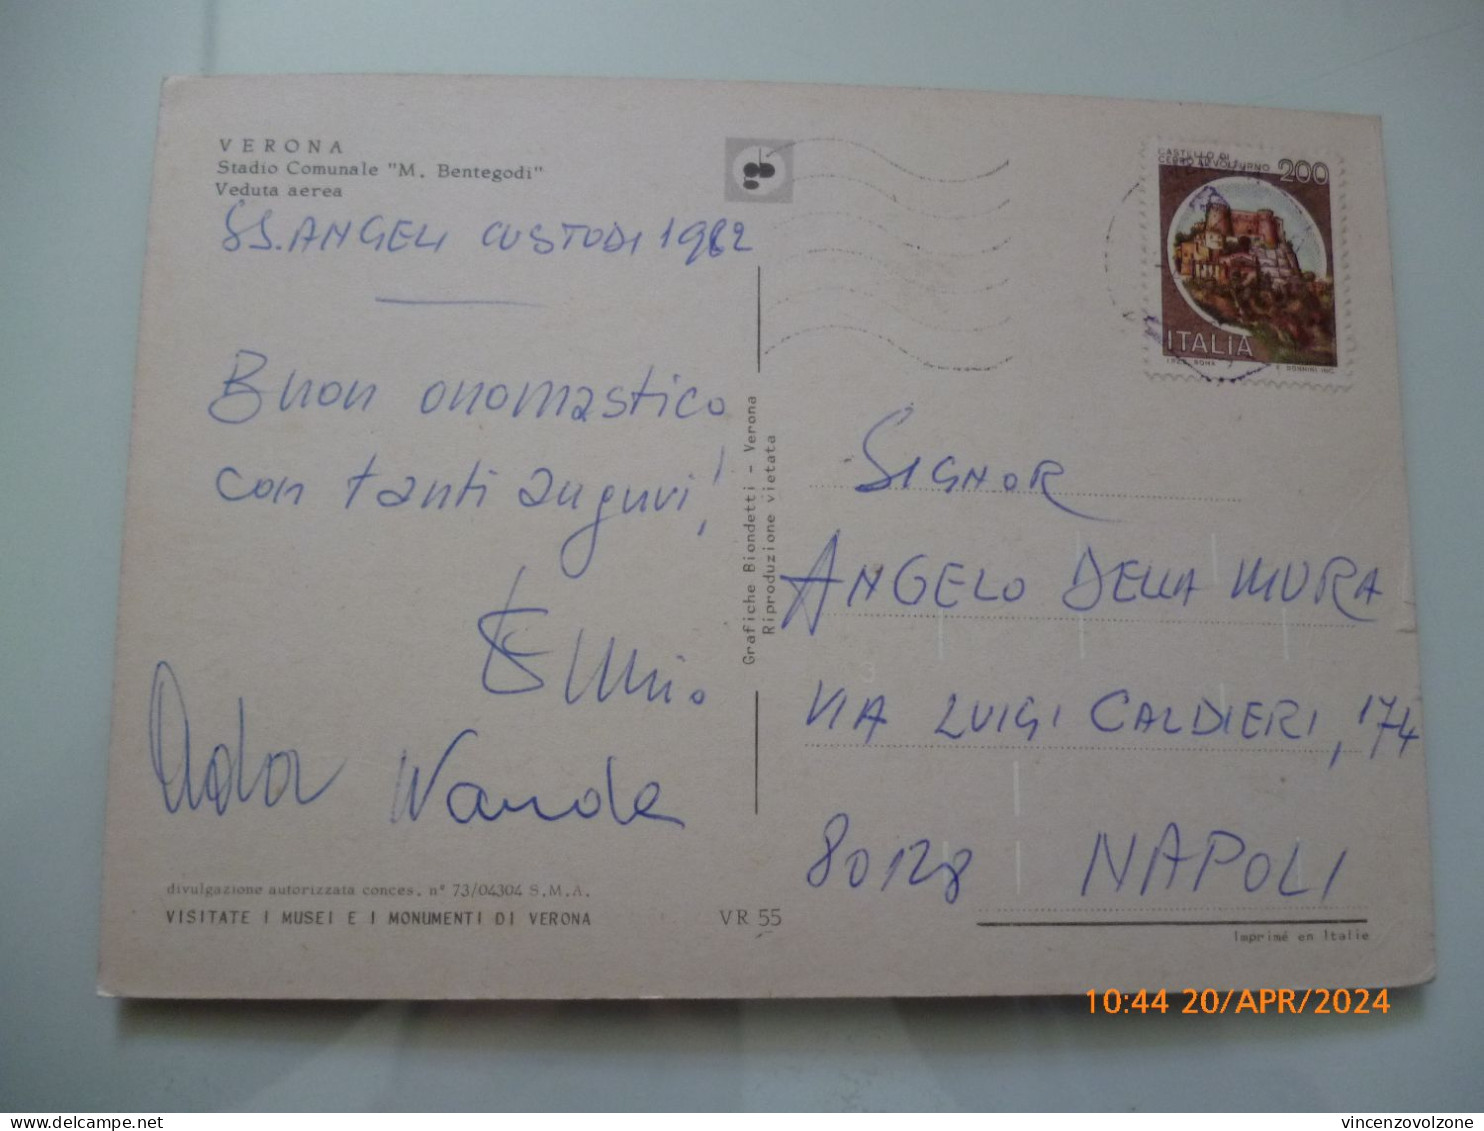 VERONA
Stadio Comunale "M. Bentegodi"
Veduta aerea
SS. ANGELI CUSTODI 1982
Buon onomastico
con tanti auguri!
Ada Wanda
divulgazione autorizzata conces. n° 73/04304 S.M.A.
VISITATE I MUSEI E I MONUMENTI DI VERONA
VR 55
Grafiche Biondetti - Verona
Riproduzione vietata
CASTELLO DI
CERRO AL VOLTURNO 200
ITALIA
I.P.Z.S. ROMA E. DONNINI INC.
SIGNOR
ANGELO DELLA MURA
VIA LUIGI CALDIERI, 174
80128 NAPOLI
Imprimé en Italie
10:44 20/APR/2024
vincenzovolzone